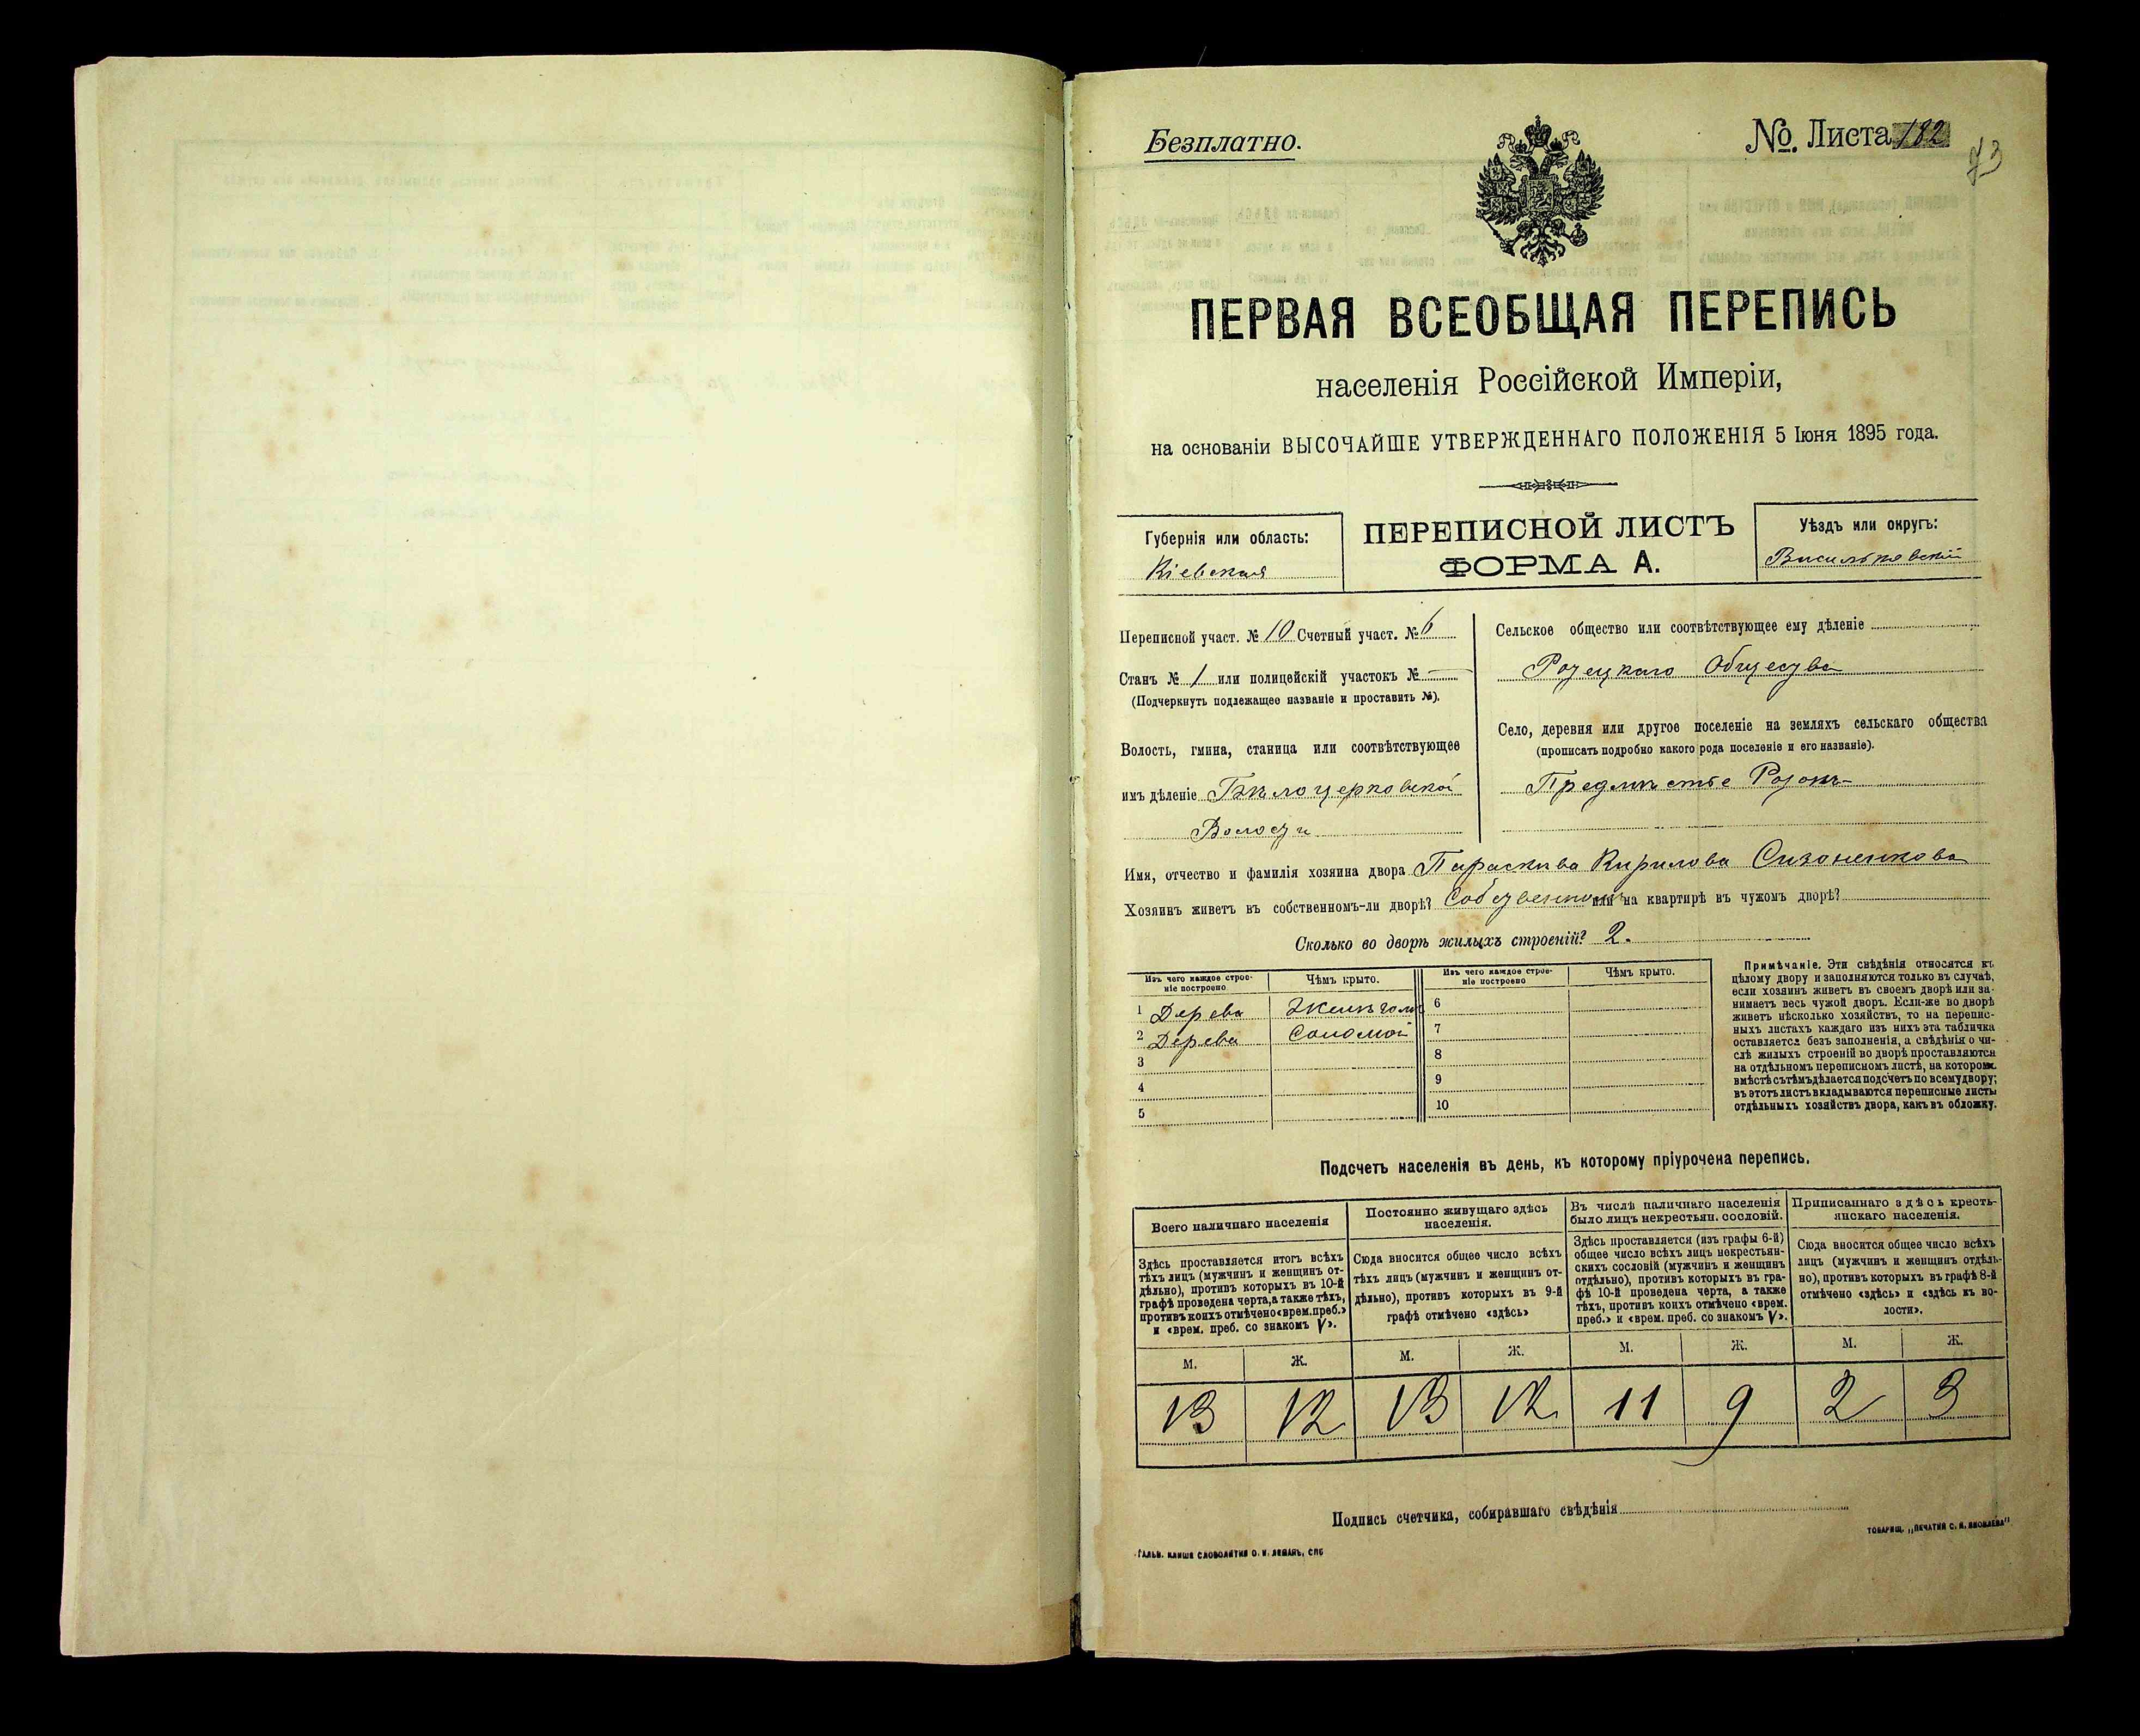 Безплатно.
№. Листа 182
73
ПЕРВАЯ ВСЕОБЩАЯ ПЕРЕПИСЬ
населенія Россійской Имперіи,
на основаніи ВЫСОЧАЙШЕ УТВЕРЖДЕННАГО ПОЛОЖЕНІЯ 5 Іюня 1895 года.
Губернія или область:
Кіевская
ПЕРЕПИСНОЙ ЛИСТЪ
ФОРМА А.
Уѣздъ или округъ:
Васильковскій
Переписной участ. № 10 Счетный участ. № 6
Станъ № 1 или полицейскій участокъ № —
(Подчеркнуть подлежащее названіе и проставить №).
Волость, гмина, станица или соотвѣтствующее
имъ дѣленіе Бѣлоцерковской
Волости
Сельское общество или соотвѣтствующее ему дѣленіе
Общества
Село, деревня или другое поселеніе на земляхъ сельскаго общества
(прописать подробно какого рода поселеніе и его названіе).
Предмѣстье
Имя, отчество и фамилія хозяина двора Параскива Кирилова Сизоненкова
Хозяинъ живетъ въ собственномъ-ли дворѣ? Собственномъ или на квартирѣ въ чужомъ дворѣ?
Сколько во дворѣ жилыхъ строеній? 2.
Изъ чего каждое строе-
ніе построено
Чѣмъ крыто.
Изъ чего каждое строе-
ніе построено
Чѣмъ крыто.
1 Дерева 6
2 Дерева Соломой 7
3 8
4 9
5 10
Примѣчаніе. Эти свѣдѣнія относятся къ
цѣлому двору и заполняются только въ случаѣ,
если хозяинъ живетъ въ своемъ дворѣ или за-
нимаетъ весь чужой дворъ. Если-же во дворѣ
живетъ нѣсколько хозяйствъ, то на перепис-
ныхъ листахъ каждаго изъ нихъ эта табличка
оставляется безъ заполненія, а свѣдѣнія о чи-
слѣ жилыхъ строеній во дворѣ проставляются
на отдѣльномъ переписномъ листѣ, на которомъ
вмѣстѣ съ тѣмъ дѣлается подсчетъ по всему двору;
въ этотъ листъ вкладываются переписные листы
отдѣльныхъ хозяйствъ двора, какъ въ обложку.
Подсчетъ населенія въ день, къ которому пріурочена перепись.
Всего наличнаго населенія
Здѣсь проставляется итогъ всѣхъ
тѣхъ лицъ (мужчинъ и женщинъ от-
дѣльно), противъ которыхъ въ 10-й
графѣ проведена черта, а также тѣхъ,
противъ коихъ отмѣчено «врем. преб.»
и «врем. преб. со знакомъ V».
Постоянно живущаго здѣсь
населенія.
Сюда вносится общее число всѣхъ
тѣхъ лицъ (мужчинъ и женщинъ от-
дѣльно), противъ которыхъ въ 9-й
графѣ отмѣчено «здѣсь»
Въ числѣ наличнаго населенія
было лицъ некрестьян. сословій.
Здѣсь проставляется (изъ графы 6-й)
общее число всѣхъ лицъ некрестьян-
скихъ сословій (мужчинъ и женщинъ
отдѣльно), противъ которыхъ въ гра-
фѣ 10-й проведена черта, а также
тѣхъ, противъ коихъ отмѣчено «врем.
преб.» и «врем. преб. со знакомъ V».
Приписаннаго здѣсь кресть-
янскаго населенія.
Сюда вносится общее число всѣхъ
лицъ (мужчинъ и женщинъ отдѣль-
но), противъ которыхъ въ графѣ 8-й
отмѣчено «здѣсь» и «здѣсь къ во-
лости».
М. Ж. М. Ж. М. Ж. М. Ж.
13 12 13 12 11 9 2 3
Подпись счетчика, собиравшаго свѣдѣнія
ГАЛЬВ. КЛИШЕ СЛОВОЛИТНИ О. И. ЛЕМАНЪ, СПБ
ТОВАРИЩ. „ПЕЧАТНЯ С. П. ЯКОВЛЕВА"